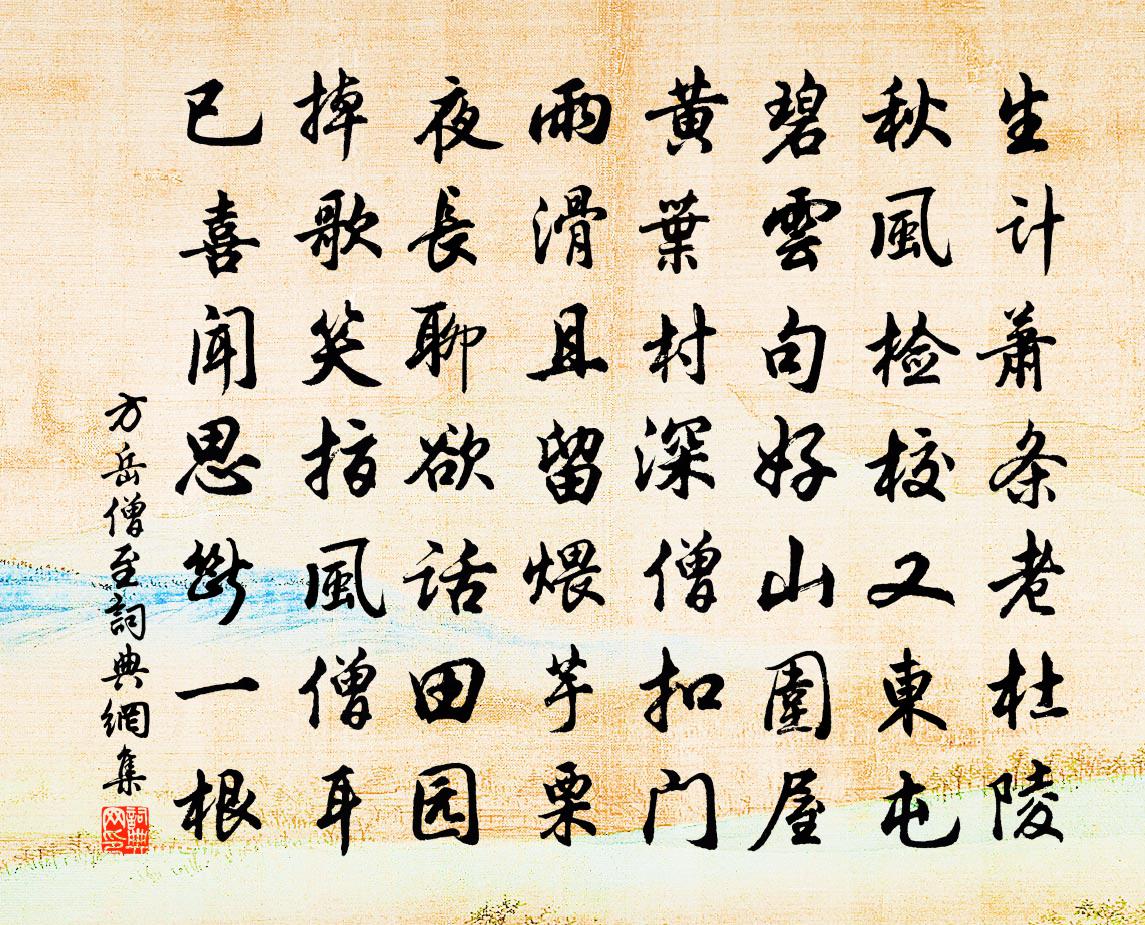 生计萧条老杜陵
秋風检校又東屯
碧雲句好山圍屋
黄葉村深僧扣门
雨滑且留煨芋栗
夜長聊欲话田园
掉歌笑指風僧耳
已喜闻思断一根
方岳僧至詞典網集
詞典网印